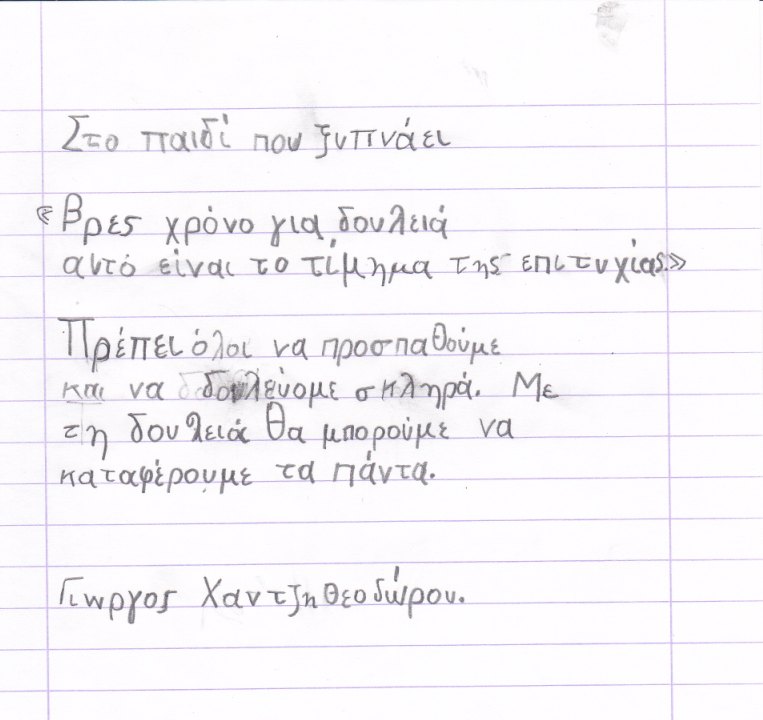 Στο παιδί που ξυπνάει
«Βρες χρόνο για δουλειά
αυτό είναι το τίμημα της επιτυχίας.»
Πρέπει όλοι να προσπαθούμε
και να δουλεύομε σκληρά. Με
τη δουλειά θα μπορούμε να
καταφέρουμε τα πάντα.
Γιωργος Χαντζηθεοδώρου.